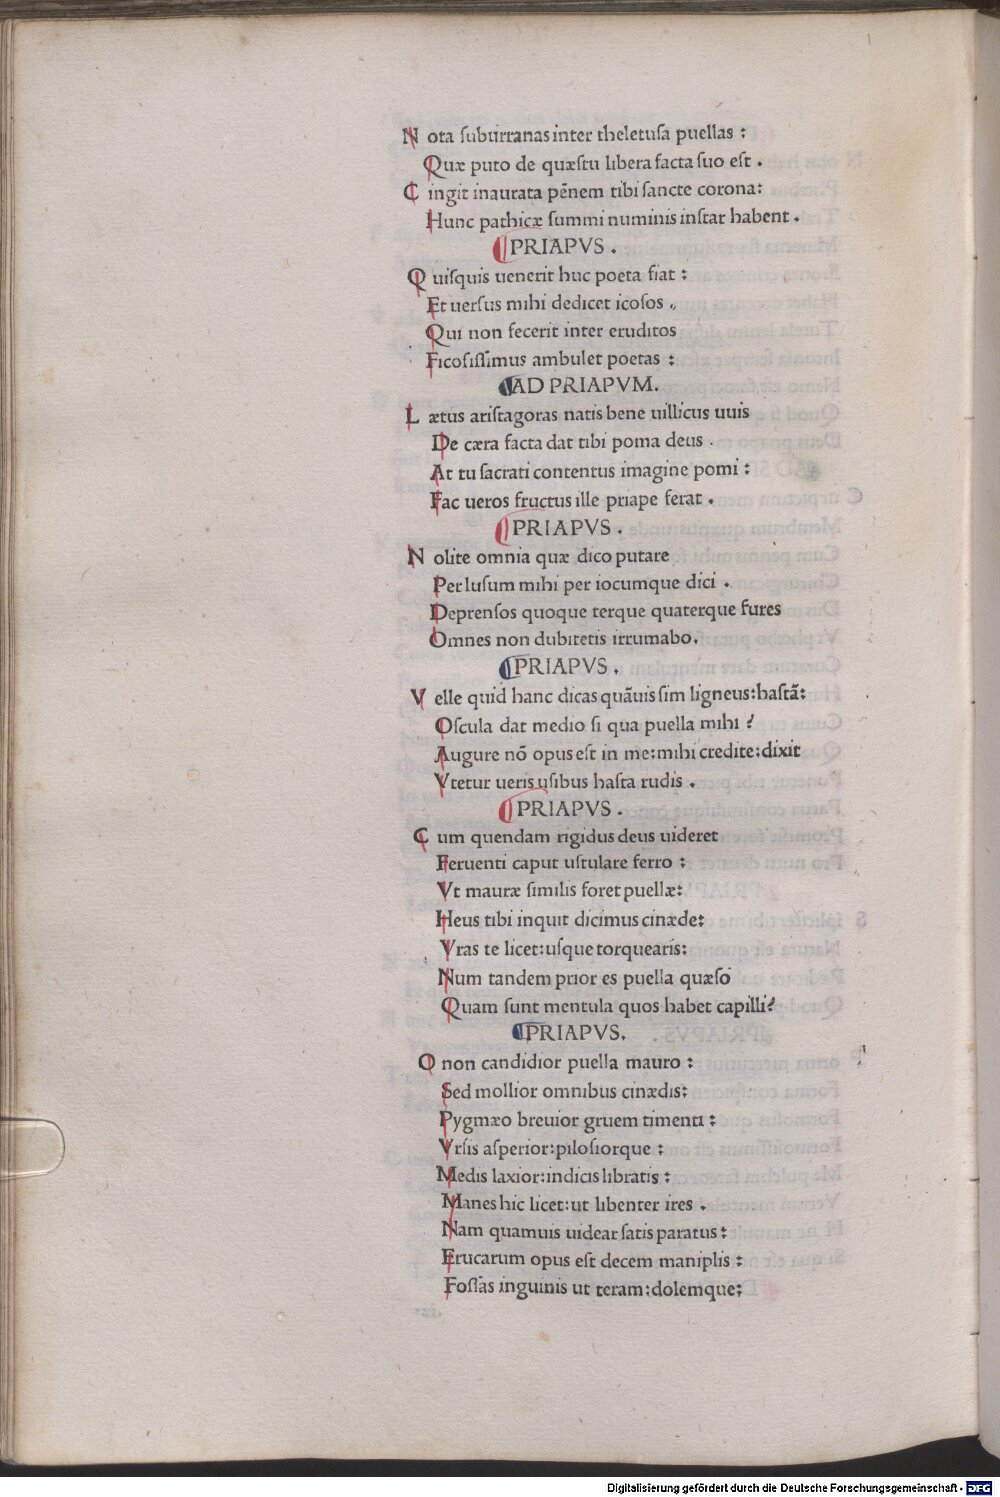 N ota ſuburranas inter theletuſa puellas :
Quæ puto de quæſtu libera facta ſuo eſt .
C ingit inaurata pēnem tibi ſancte corona:
Hunc pathicæ ſummi numinis inſtar habent .
PRIAPVS .
Q uiſquis uenerit huc poeta fiat :
Et uerſus mihi dedicet icoſos .
Qui non fecerit inter eruditos
Ficoſiſſimus ambulet poetas :
AD PRIAPVM.
L ætus ariſtagoras natis bene uillicus uuis
De cæra facta dat tibi poma deus .
At tu ſacrati contentus imagine pomi :
Fac ueros fructus ille priape ferat .
PRIAPVS .
N olite omnia quæ dico putare
Per luſum mihi per iocumque dici .
Deprenſos quoque terque quaterque fures
Omnes non dubitetis irrumabo.
PRIAPVS .
V elle quid hanc dicas quāuis ſim ligneus:haſtā:
Oſcula dat medio ſi qua puella mihi ?
Augure nō opus eſt in me:mihi credite:dixit
Vtetur ueris uſibus haſta rudis .
PRIAPVS .
C um quendam rigidus deus uideret
Feruenti caput uſtulare ferro :
Vt mauræ ſimilis foret puellæ:
Heus tibi inquit dicimus cinæde:
Vras te licet:uſque torquearis:
Num tandem prior es puella quæſo
Quam ſunt mentula quos habet capilli?
PRIAPVS.
O non candidior puella mauro :
Sed mollior omnibus cinædis:
Pygmæo breuior gruem timenti :
Vrſis aſperior:piloſiorque :
Medis laxior:indicis libratis :
Manes hic licet:ut libenter ires .
Nam quamuis uidear ſatis paratus :
Erucarum opus eſt decem maniplis :
Foſſas inguinis ut teram:dolemque;
Digitalisierung gefördert durch die Deutsche Forschungsgemeinschaft - DFG